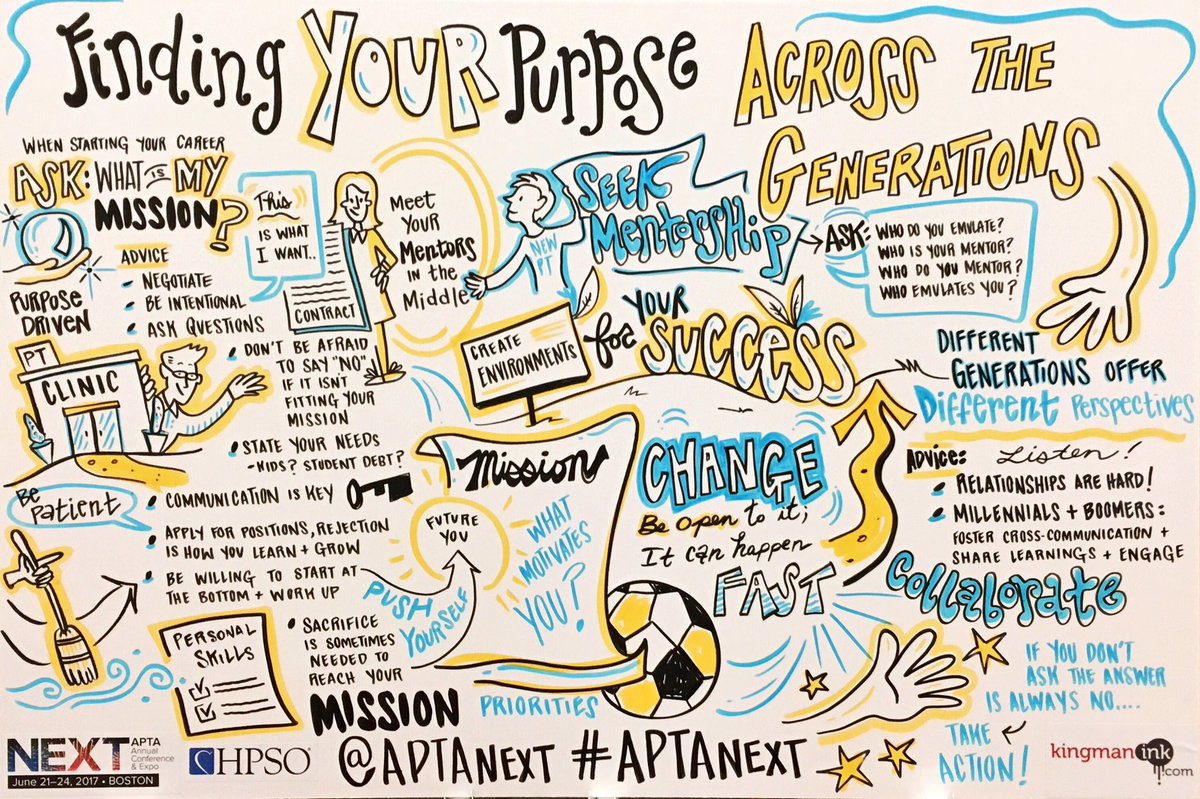 Finding YOUR Purpose ACROSS THE
GENERATIONS
WHEN STARTING YOUR CAREER
ASK: WHAT IS MY
MISSION?
PURPOSE
DRIVEN
ADVICE
- NEGOTIATE
- BE INTENTIONAL
- ASK QUESTIONS
This
IS WHAT
I WANT..
CONTRACT
Meet
Your
Mentors
in the
Middle
NEW
PT
SEEK
MentorsHip
ASK:
WHO DO YOU EMULATE?
WHO IS YOUR MENTOR?
WHO DO YOU MENTOR?
WHO EMULATES YOU?
PT
CLINIC
• DON'T BE AFRAID
TO SAY "NO"
IF IT ISN'T
FITTING YOUR
MISSION
• STATE YOUR NEEDS
- KIDS? STUDENT DEBT?
CREATE
ENVIRONMENTS
for YOUR
SUCCESS
DIFFERENT
GENERATIONS OFFER
Different Perspectives
Advice: Listen!
• RELATIONSHIPS ARE HARD!
• MILLENNIALS + BOOMERS:
FOSTER CROSS-COMMUNICATION +
SHARE LEARNINGS + ENGAGE
Collaborate
Be
patient
• COMMUNICATION IS KEY
• APPLY FOR POSITIONS, REJECTION
IS HOW YOU LEARN + GROW
• BE WILLING TO START AT
THE BOTTOM + WORK UP
PERSONAL
SKILLS
• SACRIFICE
IS SOMETIMES
NEEDED TO
REACH YOUR
MISSION
PUSH
YOURSELF
FUTURE
YOU
Mission
WHAT
MOTIVATES
YOU?
PRIORITIES
CHANGE
Be open to it;
It can happen
FAST
IF YOU DON'T
ASK THE ANSWER
IS ALWAYS NO....
TAKE
ACTION!
NEXT APTA
Annual
Conference
& Expo
June 21–24, 2017 • BOSTON
HPSO®
@APTANEXT #APTANEXT
kingmanink
.com